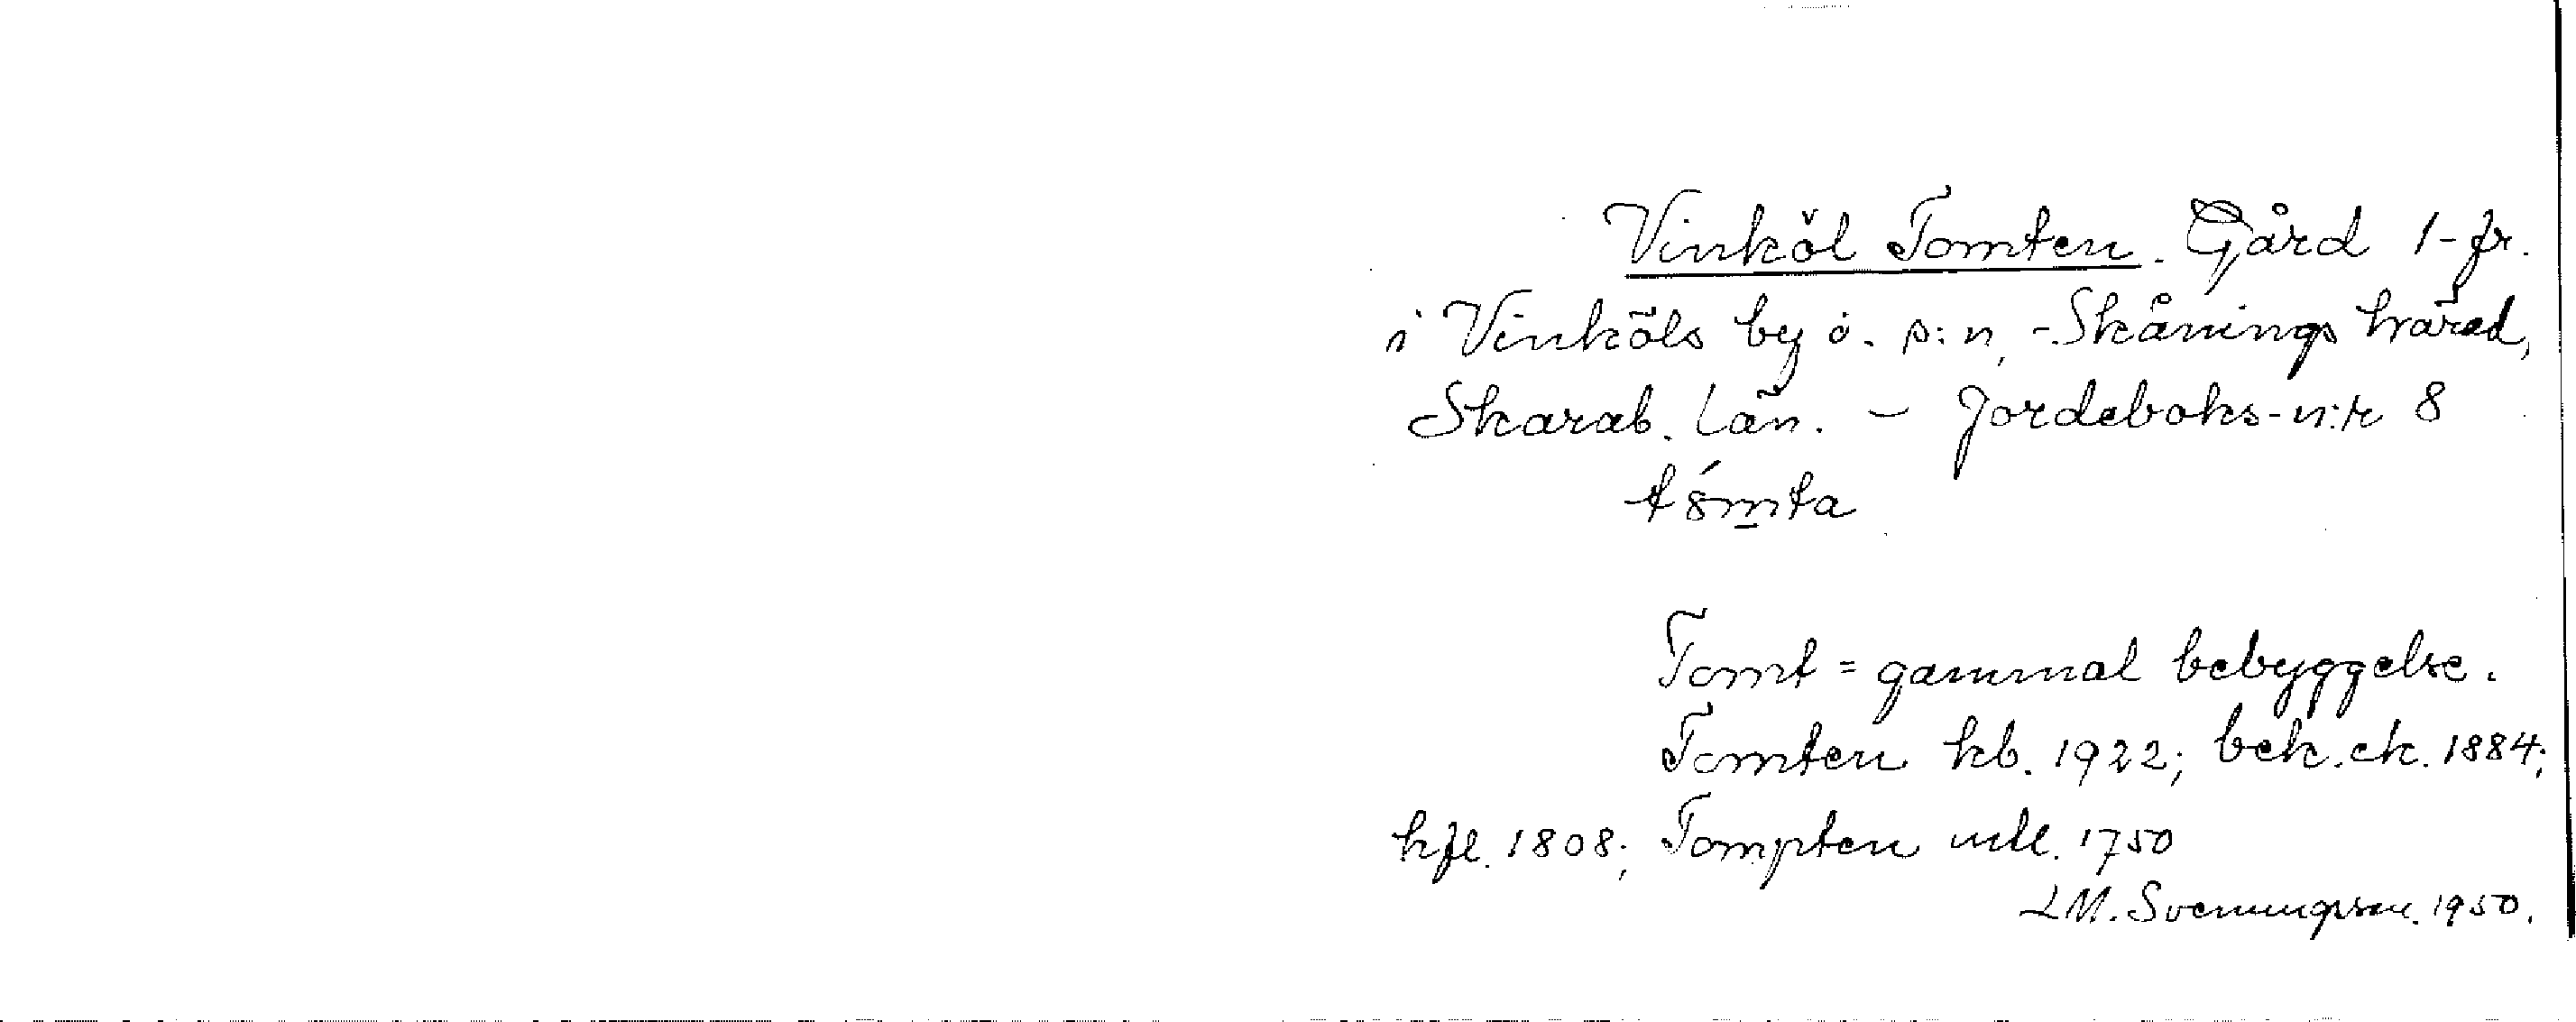 Vinköl Tomten. Gård 1-fr.
i Vinköls by o. s:n, - Skånings härad,
Skarab. län. - Jordeboks-n:r 8
Tomt = gammal bebyggelse.
Tomten kb. 1922; bek. ek. 1884;
hfl. 1808; Tompten mtl. 1750
L M. Svenungsson. 1950.